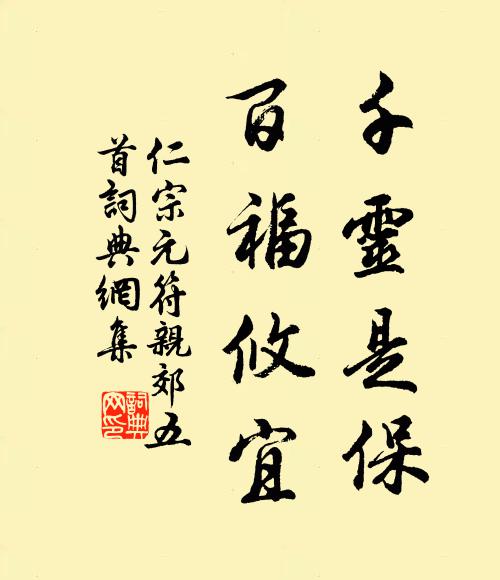 千靈是保
百福攸宜
仁宗元符親郊五
首詞典網集
詞典
网印